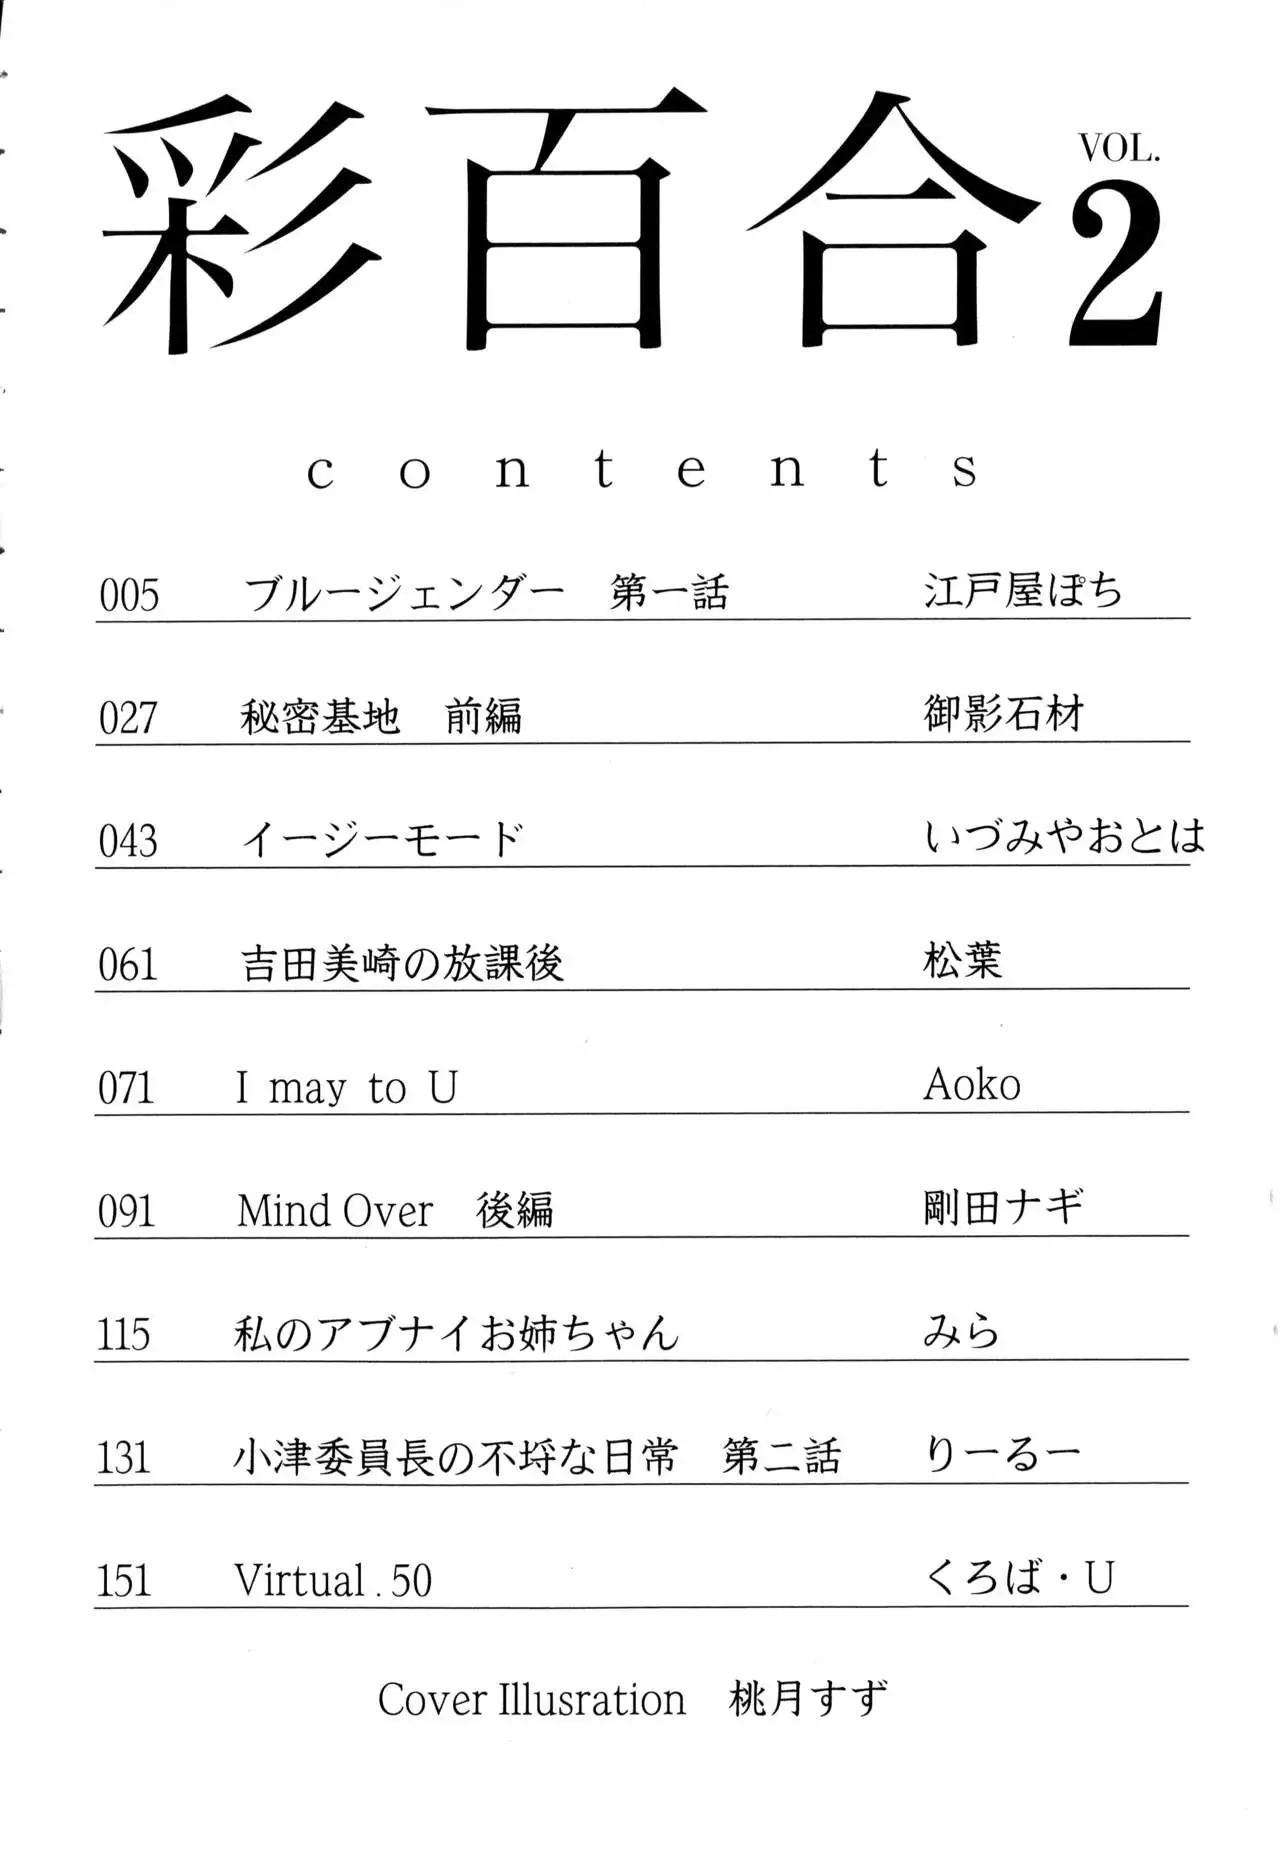 彩百合 VOL. 2
contents
005 ブルージェンダー 第一話 江戸屋ぽち
027 秘密基地 前編 御影石材
043 イージーモード いづみやおとは
061 吉田美崎の放課後 松葉
071 I may to U Aoko
091 Mind Over 後編 剛田ナギ
115 私のアブナイお姉ちゃん みら
131 小津委員長の不埒な日常 第二話 りーるー
151 Virtual . 50 くろば・U
Cover Illusration 桃月すず